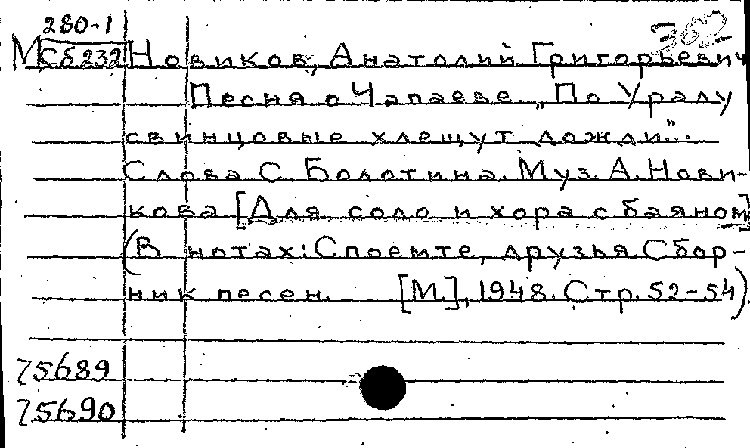 280-1
362
М Сб232 Новиков, Анатолий Григорьевич
Песня о Чапаеве. „По Уралу
свинцовые хлещут дожди"..
Слова С. Болотина. Муз. А. Нови-
кова [Для соло и хора с баяном]
(В нотах: Споемте, друзья. Сбор-
ник песен. [М.], 1948. Стр. 52-54)
75689
75690